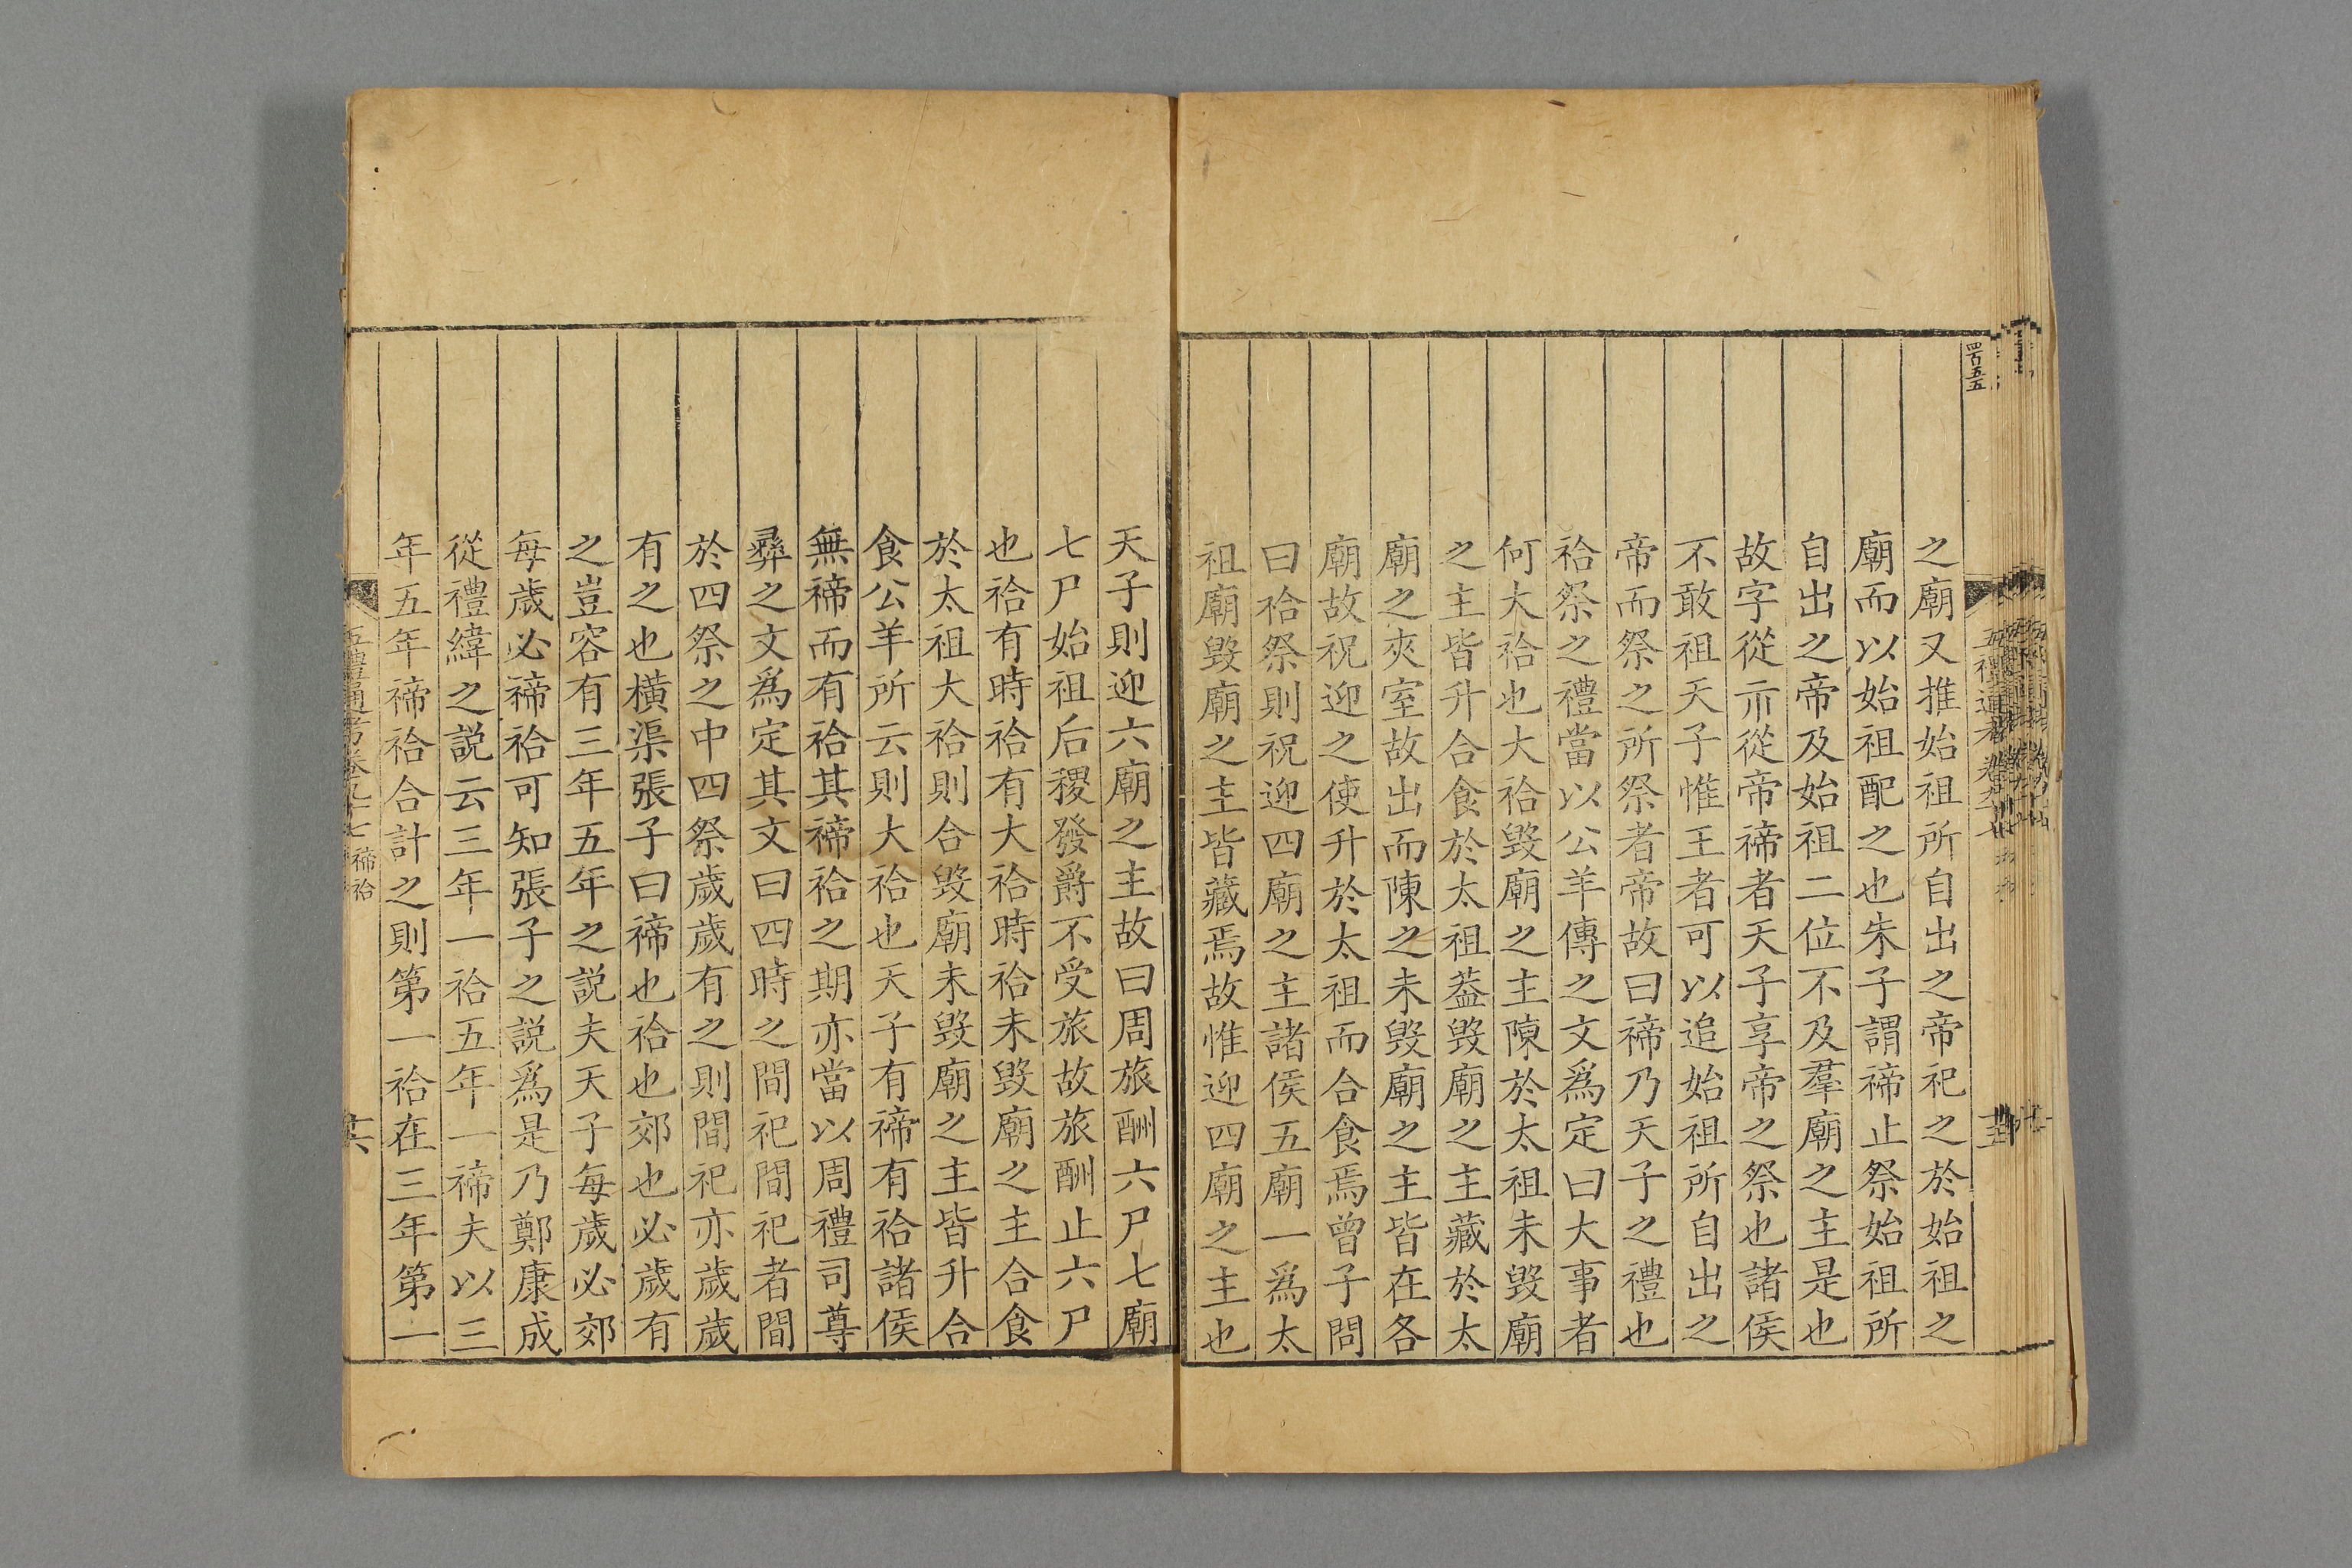 四百五五
之廟又推始祖所自出之帝祀之於始祖之
廟而以始祖配之也朱子謂禘止祭始祖所
自出之帝及始祖二位不及羣廟之主是也
故字從示從帝禘者天子享帝之祭也諸侯
不敢祖天子惟王者可以追始祖所自出之
帝而祭之所祭者帝故曰禘乃天子之禮也
祫祭之禮當以公羊傳之文爲定曰大事者
何大祫也大祫毀廟之主陳於太祖未毀廟
之主皆升合食於太祖葢毀廟之主藏於太
廟之夾室故出而陳之未毀廟之主皆在各
廟故祝迎之使升於太祖而合食焉曾子問
曰祫祭則祝迎四廟之主諸侯五廟一爲太
祖廟毀廟之主皆藏焉故惟迎四廟之主也
天子則迎六廟之主故曰周旅酬六尸七廟
七尸始祖后稷發爵不受旅故旅酬止六尸
也祫有時祫有大祫時祫未毀廟之主合食
於太祖大祫則合毀廟未毀廟之主皆升合
食公羊所云則大祫也天子有禘有祫諸侯
無禘而有祫其禘祫之期亦當以周禮司尊
彝之文爲定其文曰四時之間祀間祀者間
於四祭之中四祭歲歲有之則間祀亦歲歲
有之也橫渠張子曰禘也祫也郊也必歲有
之豈容有三年五年之説夫天子每歲必郊
每歲必禘祫可知張子之説爲是乃鄭康成
從禮緯之説云三年一祫五年一禘夫以三
年五年禘祫合計之則第一祫在三年第一
五禮通考卷九十七 禘祫